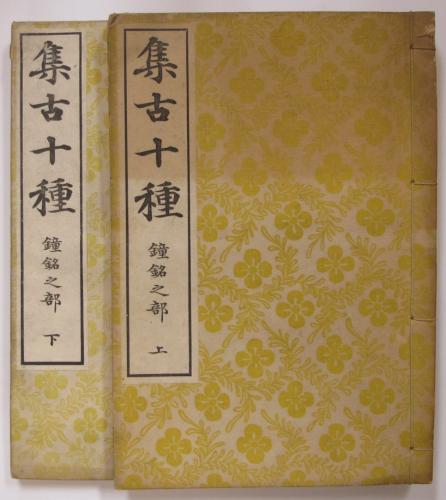 集古十種
鐘銘之部
上
集古十種
鐘銘之部
下